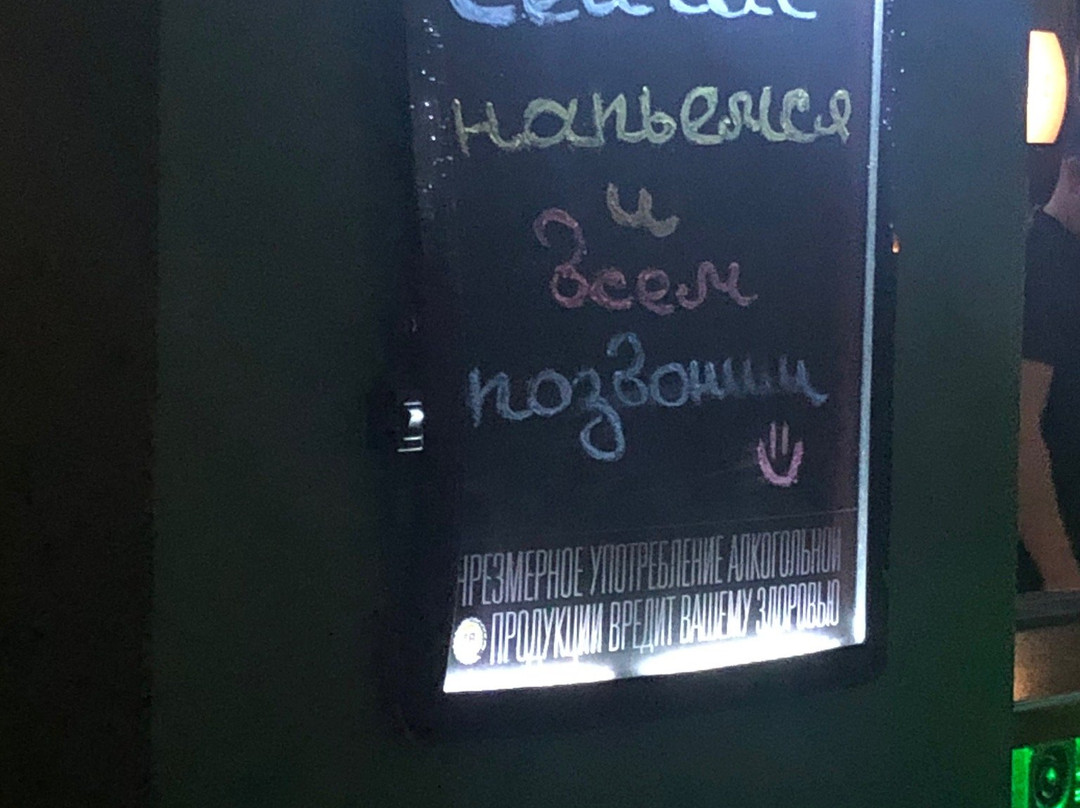 Сейчас
напьемся
и
всем
позвоним
ЧРЕЗМЕРНОЕ УПОТРЕБЛЕНИЕ АЛКОГОЛЬНОЙ
ПРОДУКЦИИ ВРЕДИТ ВАШЕМУ ЗДОРОВЬЮ